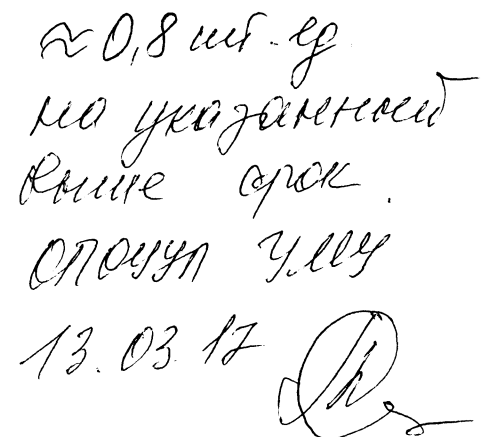 ≈ 0,8 шт. ед
на указанный
выше срок.
УМУ
13.03.17